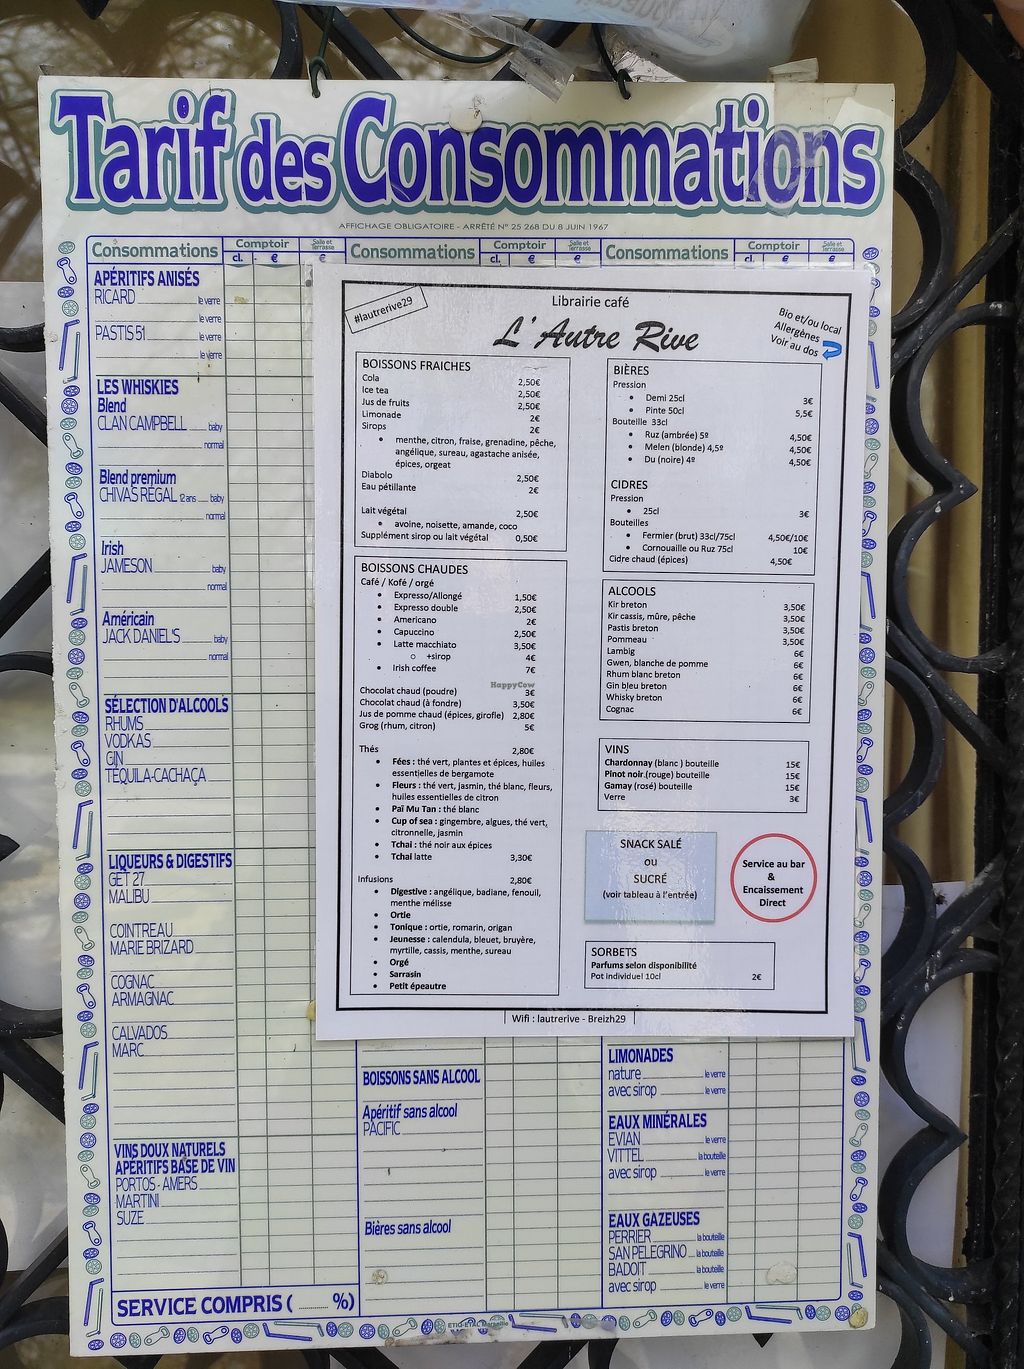 Tarif des Consommations
AFFICHAGE OBLIGATOIRE - ARRÊTÉ N° 25 268 DU 8 JUIN 1967
Consommations Comptoir Salle et Terrasse Consommations Comptoir Salle et Terrasse Consommations Comptoir Salle et Terrasse
cl. € € cl. € € cl. € €
APÉRITIFS ANISÉS
RICARD le verre
le verre
PASTIS 51 le verre
le verre
LES WHISKIES
Blend
CLAN CAMPBELL baby
normal
Blend premium
CHIVAS REGAL 12 ans baby
normal
Irish
JAMESON baby
normal
Américain
JACK DANIEL'S baby
normal
SÉLECTION D'ALCOOLS
RHUMS
VODKAS
GIN
TÉQUILA-CACHAÇA
LIQUEURS & DIGESTIFS
GET 27
MALIBU
COINTREAU
MARIE BRIZARD
COGNAC
ARMAGNAC
CALVADOS
MARC
VINS DOUX NATURELS
APÉRITIFS BASE DE VIN
PORTOS - AMERS
MARTINI
SUZE
SERVICE COMPRIS ( ........ %)
#lautrerive29
Librairie café
L' Autre Rive
Bio et/ou local
Allergènes
Voir au dos
BOISSONS FRAICHES
Cola 2,50€
Ice tea 2,50€
Jus de fruits 2,50€
Limonade 2€
Sirops 2€
• menthe, citron, fraise, grenadine, pêche,
angélique, sureau, agastache anisée,
épices, orgeat
Diabolo 2,50€
Eau pétillante 2€
Lait végétal 2,50€
• avoine, noisette, amande, coco
Supplément sirop ou lait végétal 0,50€
BOISSONS CHAUDES
Café / Kofé / orgé
• Expresso/Allongé 1,50€
• Expresso double 2,50€
• Americano 2€
• Capuccino 2,50€
• Latte macchiato 3,50€
o +sirop 4€
• Irish coffee 7€
HappyCow
Chocolat chaud (poudre) 3€
Chocolat chaud (à fondre) 3,50€
Jus de pomme chaud (épices, girofle) 2,80€
Grog (rhum, citron) 5€
Thés 2,80€
• Fées : thé vert, plantes et épices, huiles
essentielles de bergamote
• Fleurs : thé vert, jasmin, thé blanc, fleurs,
huiles essentielles de citron
• Paï Mu Tan : thé blanc
• Cup of sea : gingembre, algues, thé vert,
citronnelle, jasmin
• Tchai : thé noir aux épices
• Tchai latte 3,30€
Infusions 2,80€
• Digestive : angélique, badiane, fenouil,
menthe mélisse
• Ortie
• Tonique : ortie, romarin, origan
• Jeunesse : calendula, bleuet, bruyère,
myrtille, cassis, menthe, sureau
• Orgé
• Sarrasin
• Petit épeautre
BIÈRES
Pression
• Demi 25cl 3€
• Pinte 50cl 5,5€
Bouteille 33cl
• Ruz (ambrée) 5º 4,50€
• Melen (blonde) 4,5º 4,50€
• Du (noire) 4º 4,50€
CIDRES
Pression
• 25cl 3€
Bouteilles
• Fermier (brut) 33cl/75cl 4,50€/10€
• Cornouaille ou Ruz 75cl 10€
Cidre chaud (épices) 4,50€
ALCOOLS
Kir breton 3,50€
Kir cassis, mûre, pêche 3,50€
Pastis breton 3,50€
Pommeau 3,50€
Lambig 6€
Gwen, blanche de pomme 6€
Rhum blanc breton 6€
Gin bleu breton 6€
Whisky breton 6€
Cognac 6€
VINS
Chardonnay (blanc ) bouteille 15€
Pinot noir.(rouge) bouteille 15€
Gamay (rosé) bouteille 15€
Verre 3€
SNACK SALÉ
ou
SUCRÉ
(voir tableau à l'entrée)
Service au bar
&
Encaissement
Direct
SORBETS
Parfums selon disponibilité
Pot individuel 10cl 2€
Wifi : lautrerive - Breizh29
BOISSONS SANS ALCOOL
Apéritif sans alcool
PACIFIC
Bières sans alcool
LIMONADES
nature le verre
avec sirop le verre
EAUX MINÉRALES
EVIAN le verre
VITTEL la bouteille
avec sirop le verre
EAUX GAZEUSES
PERRIER la bouteille
SAN PELEGRINO la bouteille
BADOIT la bouteille
avec sirop le verre